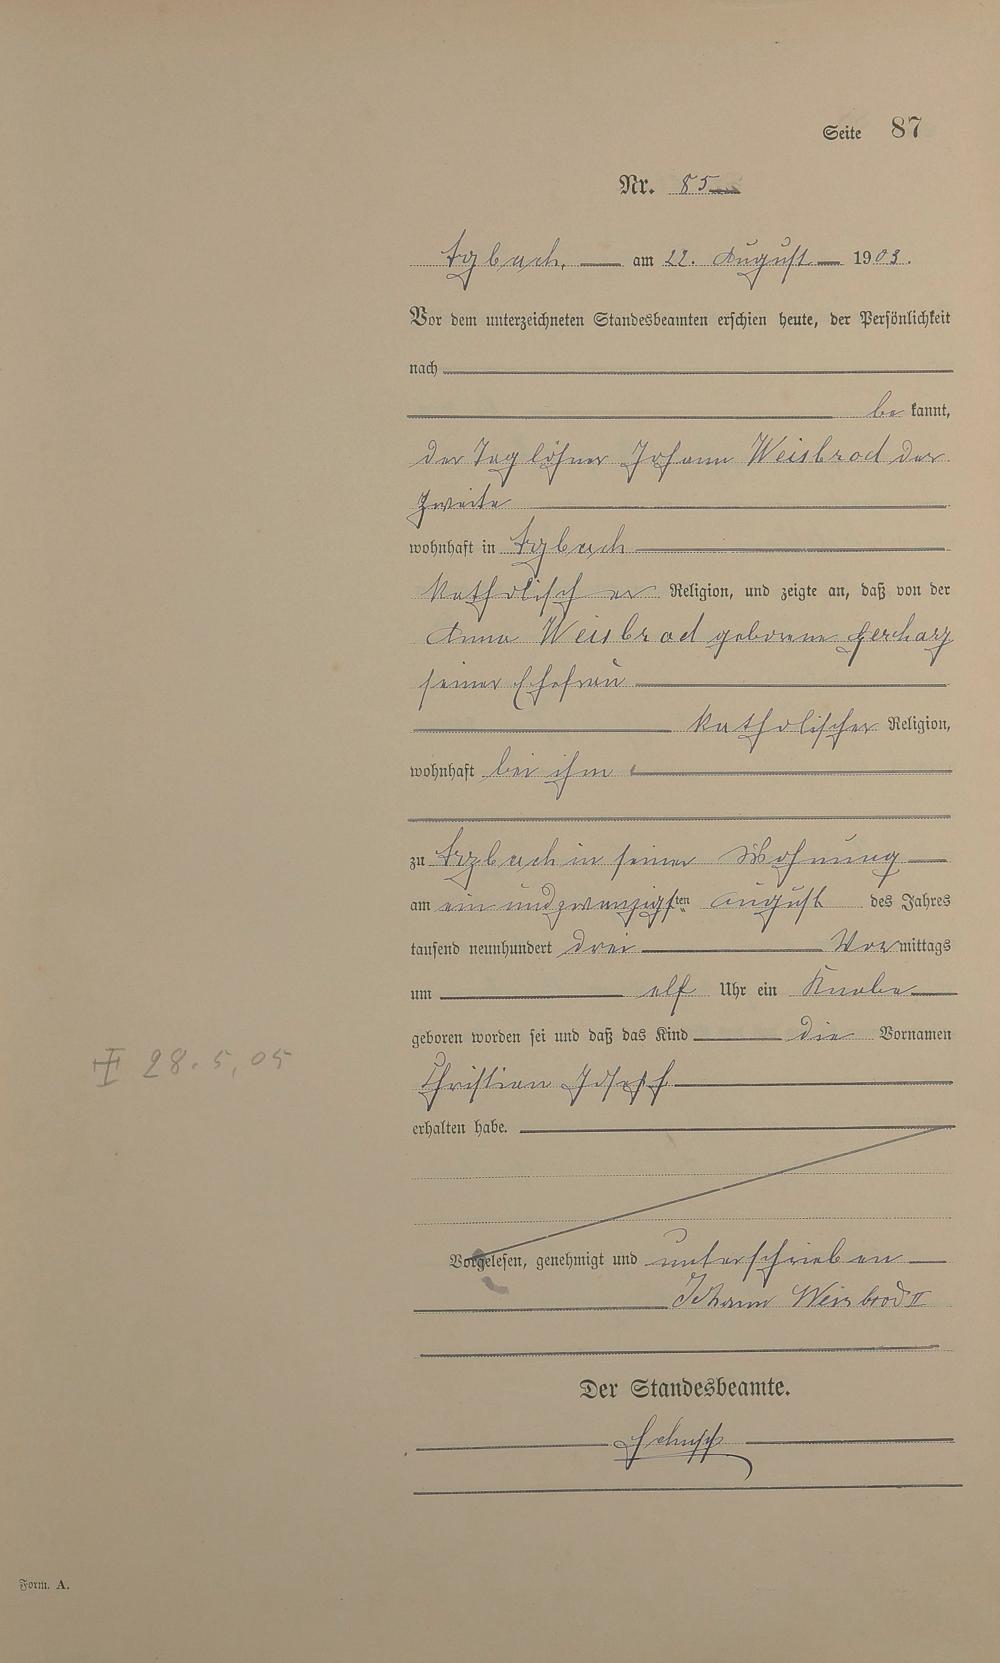 Seite 87
Nr. 85
Arzbach, am 22. August 1903.
Vor dem unterzeichneten Standesbeamten erschien heute, der Persönlichkeit
nach
be kannt,
der Taglöhner Johann Weisbrod der
Zweite
wohnhaft in Arzbach
katholischer Religion, und zeigte an, daß von der
Anna Weisbrod geborene Gerharz
seiner Ehefrau
katholischer Religion,
wohnhaft bei ihm
zu Arzbach in seiner Wohnung
am ein und zwanzigsten August des Jahres
tausend neunhundert drei Vormittags
um elf Uhr ein Knabe
geboren worden sei und daß das Kind die Vornamen
╪ 28.5.05
Christian Josef
erhalten habe.
Vorgelesen, genehmigt und unterschrieben
Johann Weisbrod II
Der Standesbeamte.
Form. A.